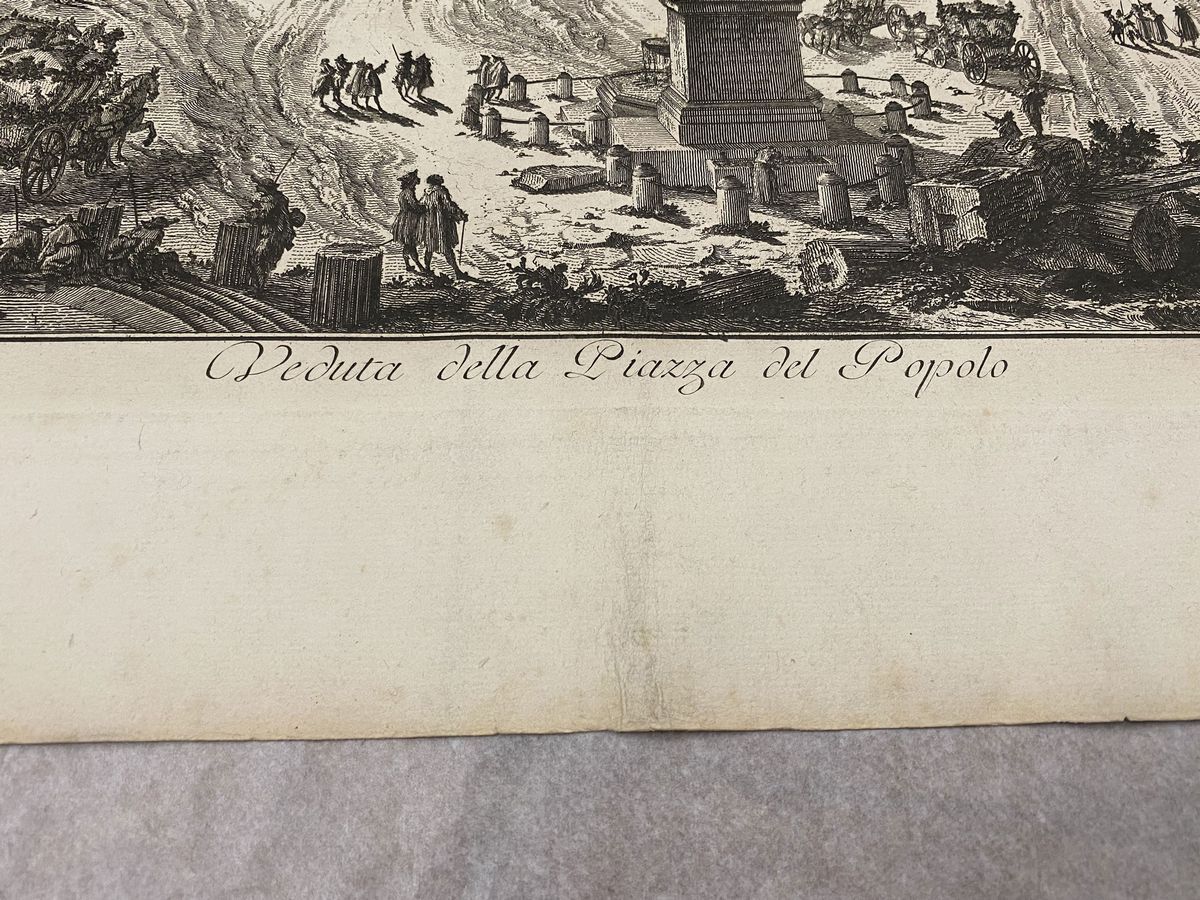 Veduta della Piazza del Popolo